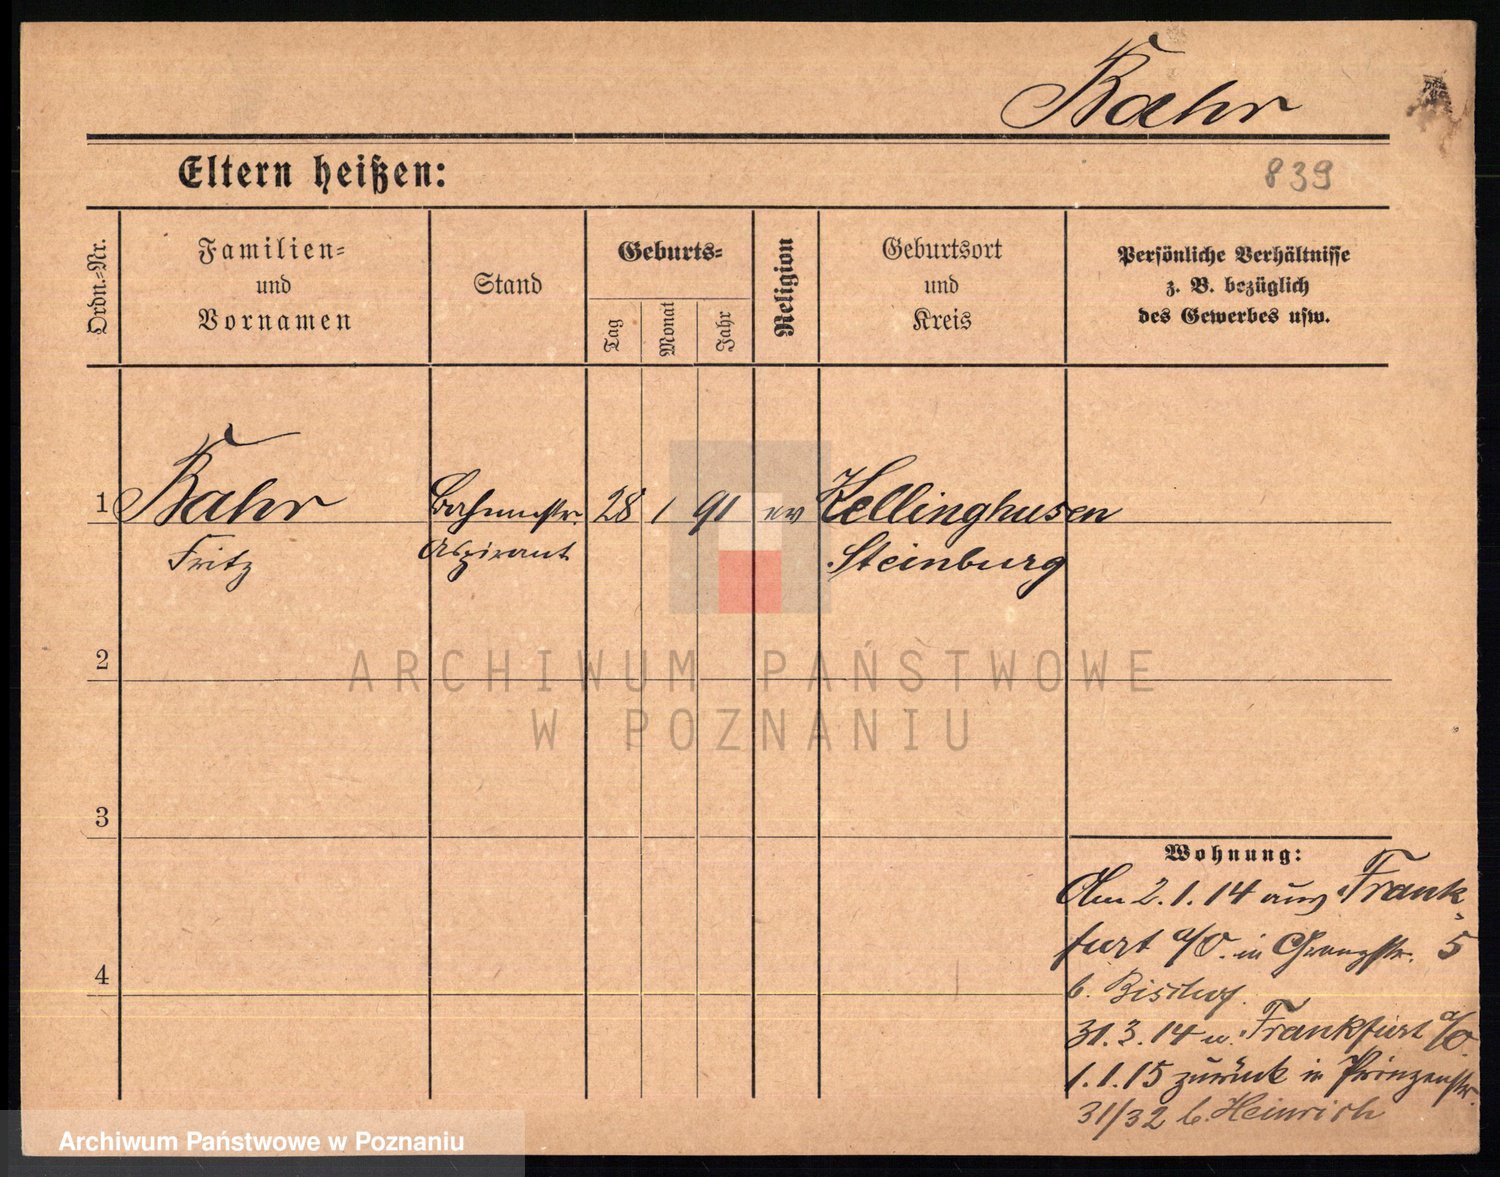 Bahr
Eltern heißen:
839
Ordn.-Nr.
Familien-
und
Vornamen
Stand
Geburts-
Tag
Monat
Jahr
Religion
Geburtsort
und
Kreis
Persönliche Verhältnisse
z. B. bezüglich
des Gewerbes usw.
1 Bahr 28 1 91 ev Kellinghusen
Fritz Aspirant Steinburg
2
3
4
Wohnung:
Am 2.1.14 aus Frank-
furt a/O. in 5
b. Bischof.
31.3.14 n. Frankfurt a/O.
1.1.15 zurück in Prinzenstr.
31/32 b. Heinrich
ARCHIWUM PAŃSTWOWE
W POZNANIU
Archiwum Państwowe w Poznaniu